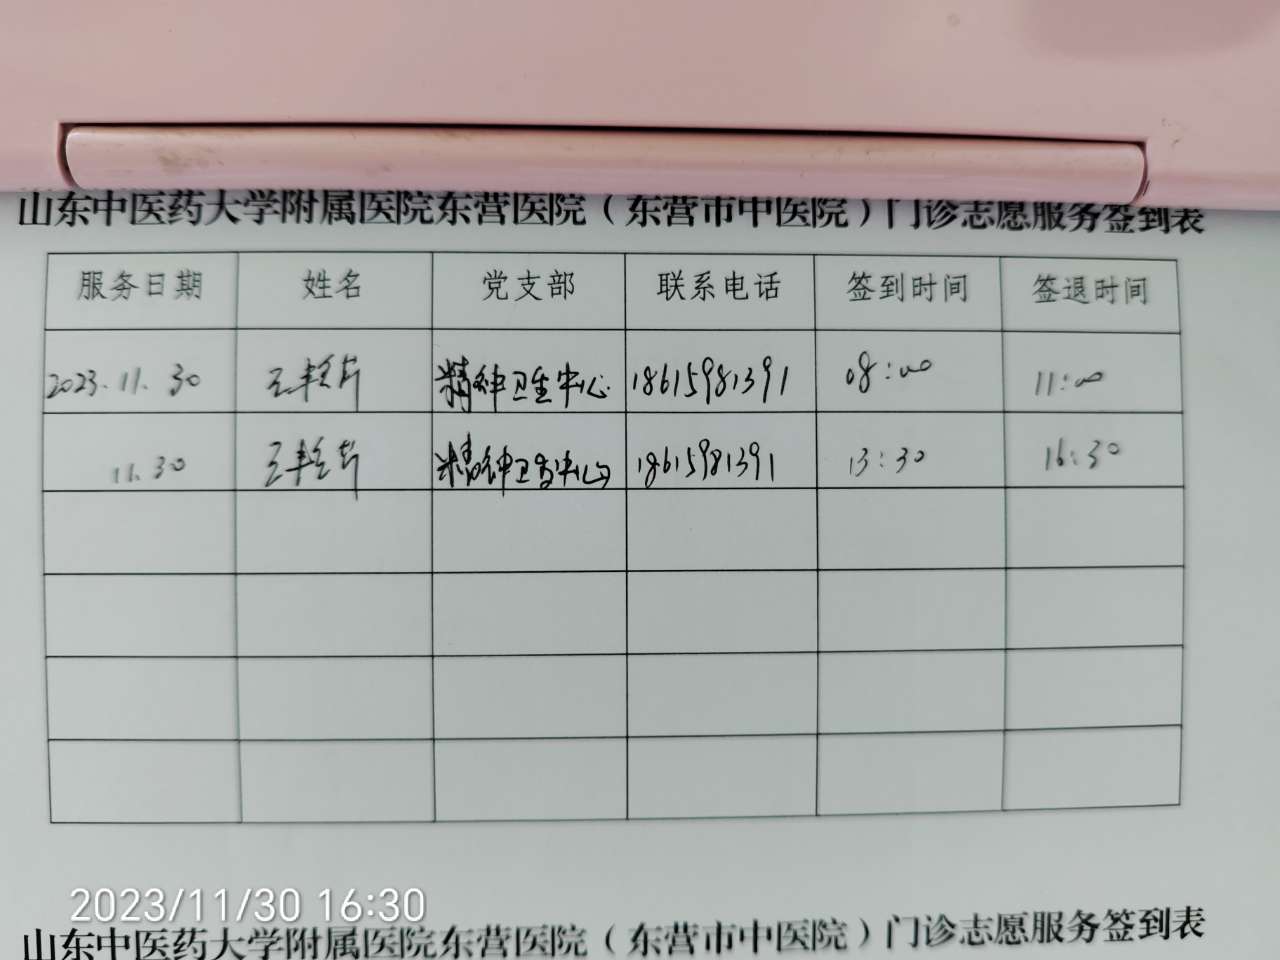 山东中医药大学附属医院东营医院（东营市中医院）门诊志愿服务签到表
服务日期 姓名 党支部 联系电话 签到时间 签退时间
2023.11.30 精神卫生中心 18615981391 08:00 11:00
11.30 精神卫生中心 18615981391 13:30 16:30
2023/11/30 16:30
山东中医药大学附属医院东营医院（东营市中医院）门诊志愿服务签到表